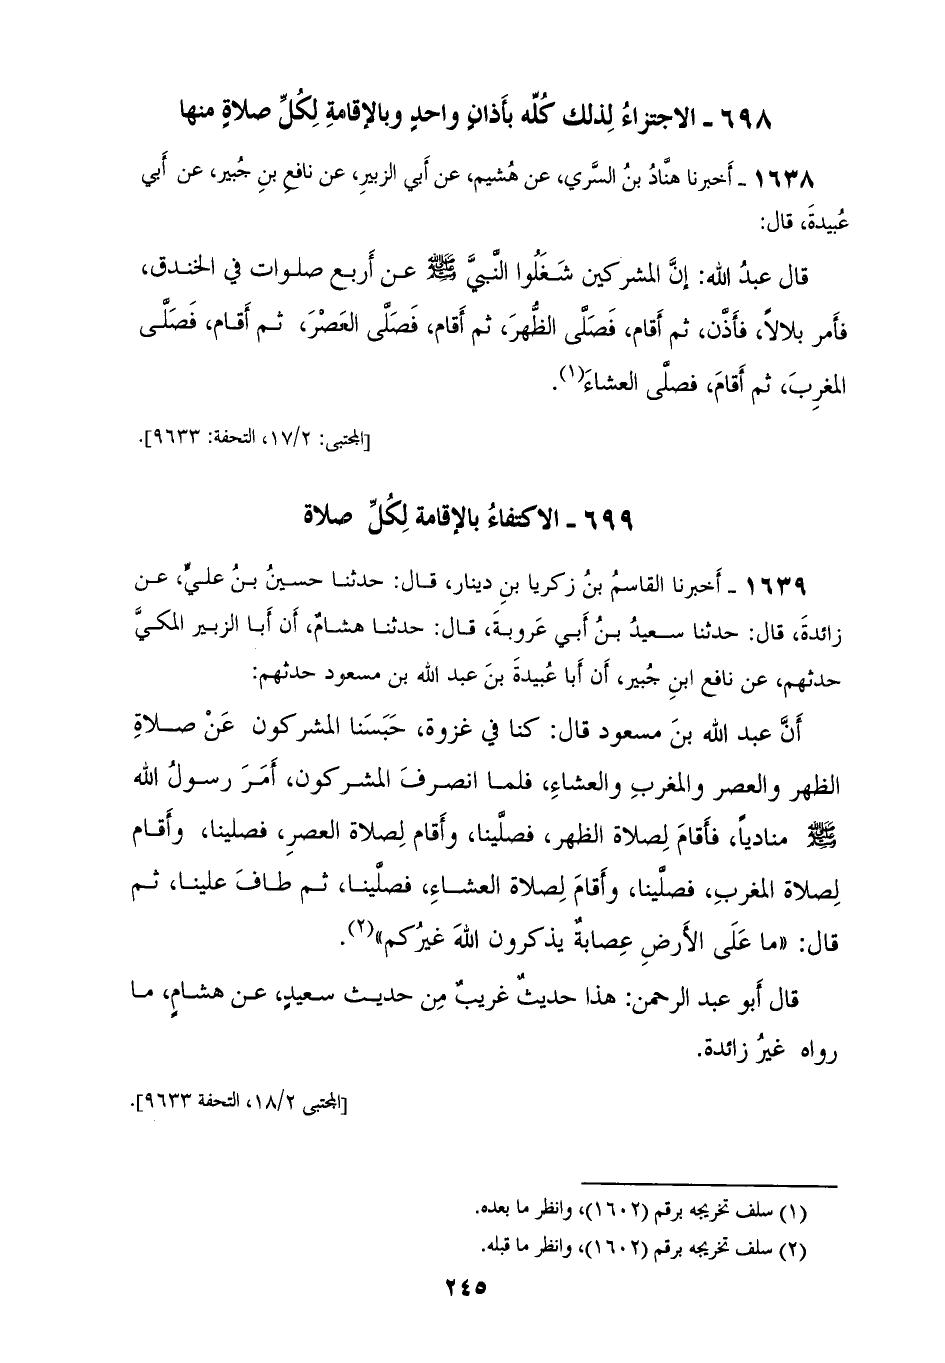 ٦٩٨ ـ الاجتزاءُ لِذلك كُلِّه بأَذانٍ واحدٍ وبالإقامةِ لِكُلِّ صلاةٍ منها
١٦٣٨ ـ أَخبرنا هنَّادُ بنُ السَّري، عن هُشيم، عن أَبي الزبيرِ، عن نافعِ بنِ جُبير، عن أَبي
عُبيدةَ، قال:
قال عبدُ الله: إنَّ المشركين شَغَلُوا النَّبيَّ ﷺ عن أَربع صلوات في الخندق،
فأَمر بلالاً، فأَذَّن، ثم أَقام، فَصَلَّى الظُّهرَ، ثم أَقام، فَصَلَّى العَصْرَ، ثم أَقام، فَصَلَّى
المغرِبَ، ثم أَقامَ، فصلَّى العشاءَ(١).
[المجتبى: ١٧/٢، التحفة: ٩٦٣٣].
٦٩٩ ـ الاكتفاءُ بالإقامة لِكُلِّ صلاة
١٦٣٩ ـ أَخبرنا القاسمُ بنُ زكريا بنِ دينار، قال: حدثنا حسينُ بنُ عليٍّ، عن
زائدةَ، قال: حدثنا سعيدُ بنُ أبي عَروبةَ، قال: حدثنا هشامٌ، أن أَبا الزبير المكيَّ
حدثهم، عن نافع ابنِ جُبير، أن أَبا عُبيدةَ بنَ عبد الله بن مسعود حدثهم:
أَنَّ عبد الله بنَ مسعود قال: كنا في غزوة، حَبَسَنا المشركون عَنْ صلاةِ
الظهر والعصر والمغربِ والعشاءِ، فلما انصرفَ المشركون، أَمَرَ رسولُ الله
ﷺ منادياً، فأَقامَ لِصلاة الظهر، فصلَّينا، وأَقام لِصلاة العصرِ، فصلينا، وأَقام
لِصلاة المغربِ، فصلَّينا، وأَقامَ لِصلاة العشاءِ، فصلَّينا، ثم طافَ علينا، ثم
قال: «ما عَلَى الأَرضِ عِصابةٌ يذكرون اللهَ غيرُكم»(٢).
قال أَبو عبد الرحمن: هذا حديثٌ غريبٌ مِن حديث سعيدٍ، عن هشامٍ، ما
رواه غيرُ زائدة.
[المجتبى ١٨/٢، التحفة ٩٦٣٣].
(١) سلف تخريجه برقم (١٦٠٢)، وانظر ما بعده.
(٢) سلف تخريجه برقم (١٦٠٢)، وانظر ما قبله.
٢٤٥